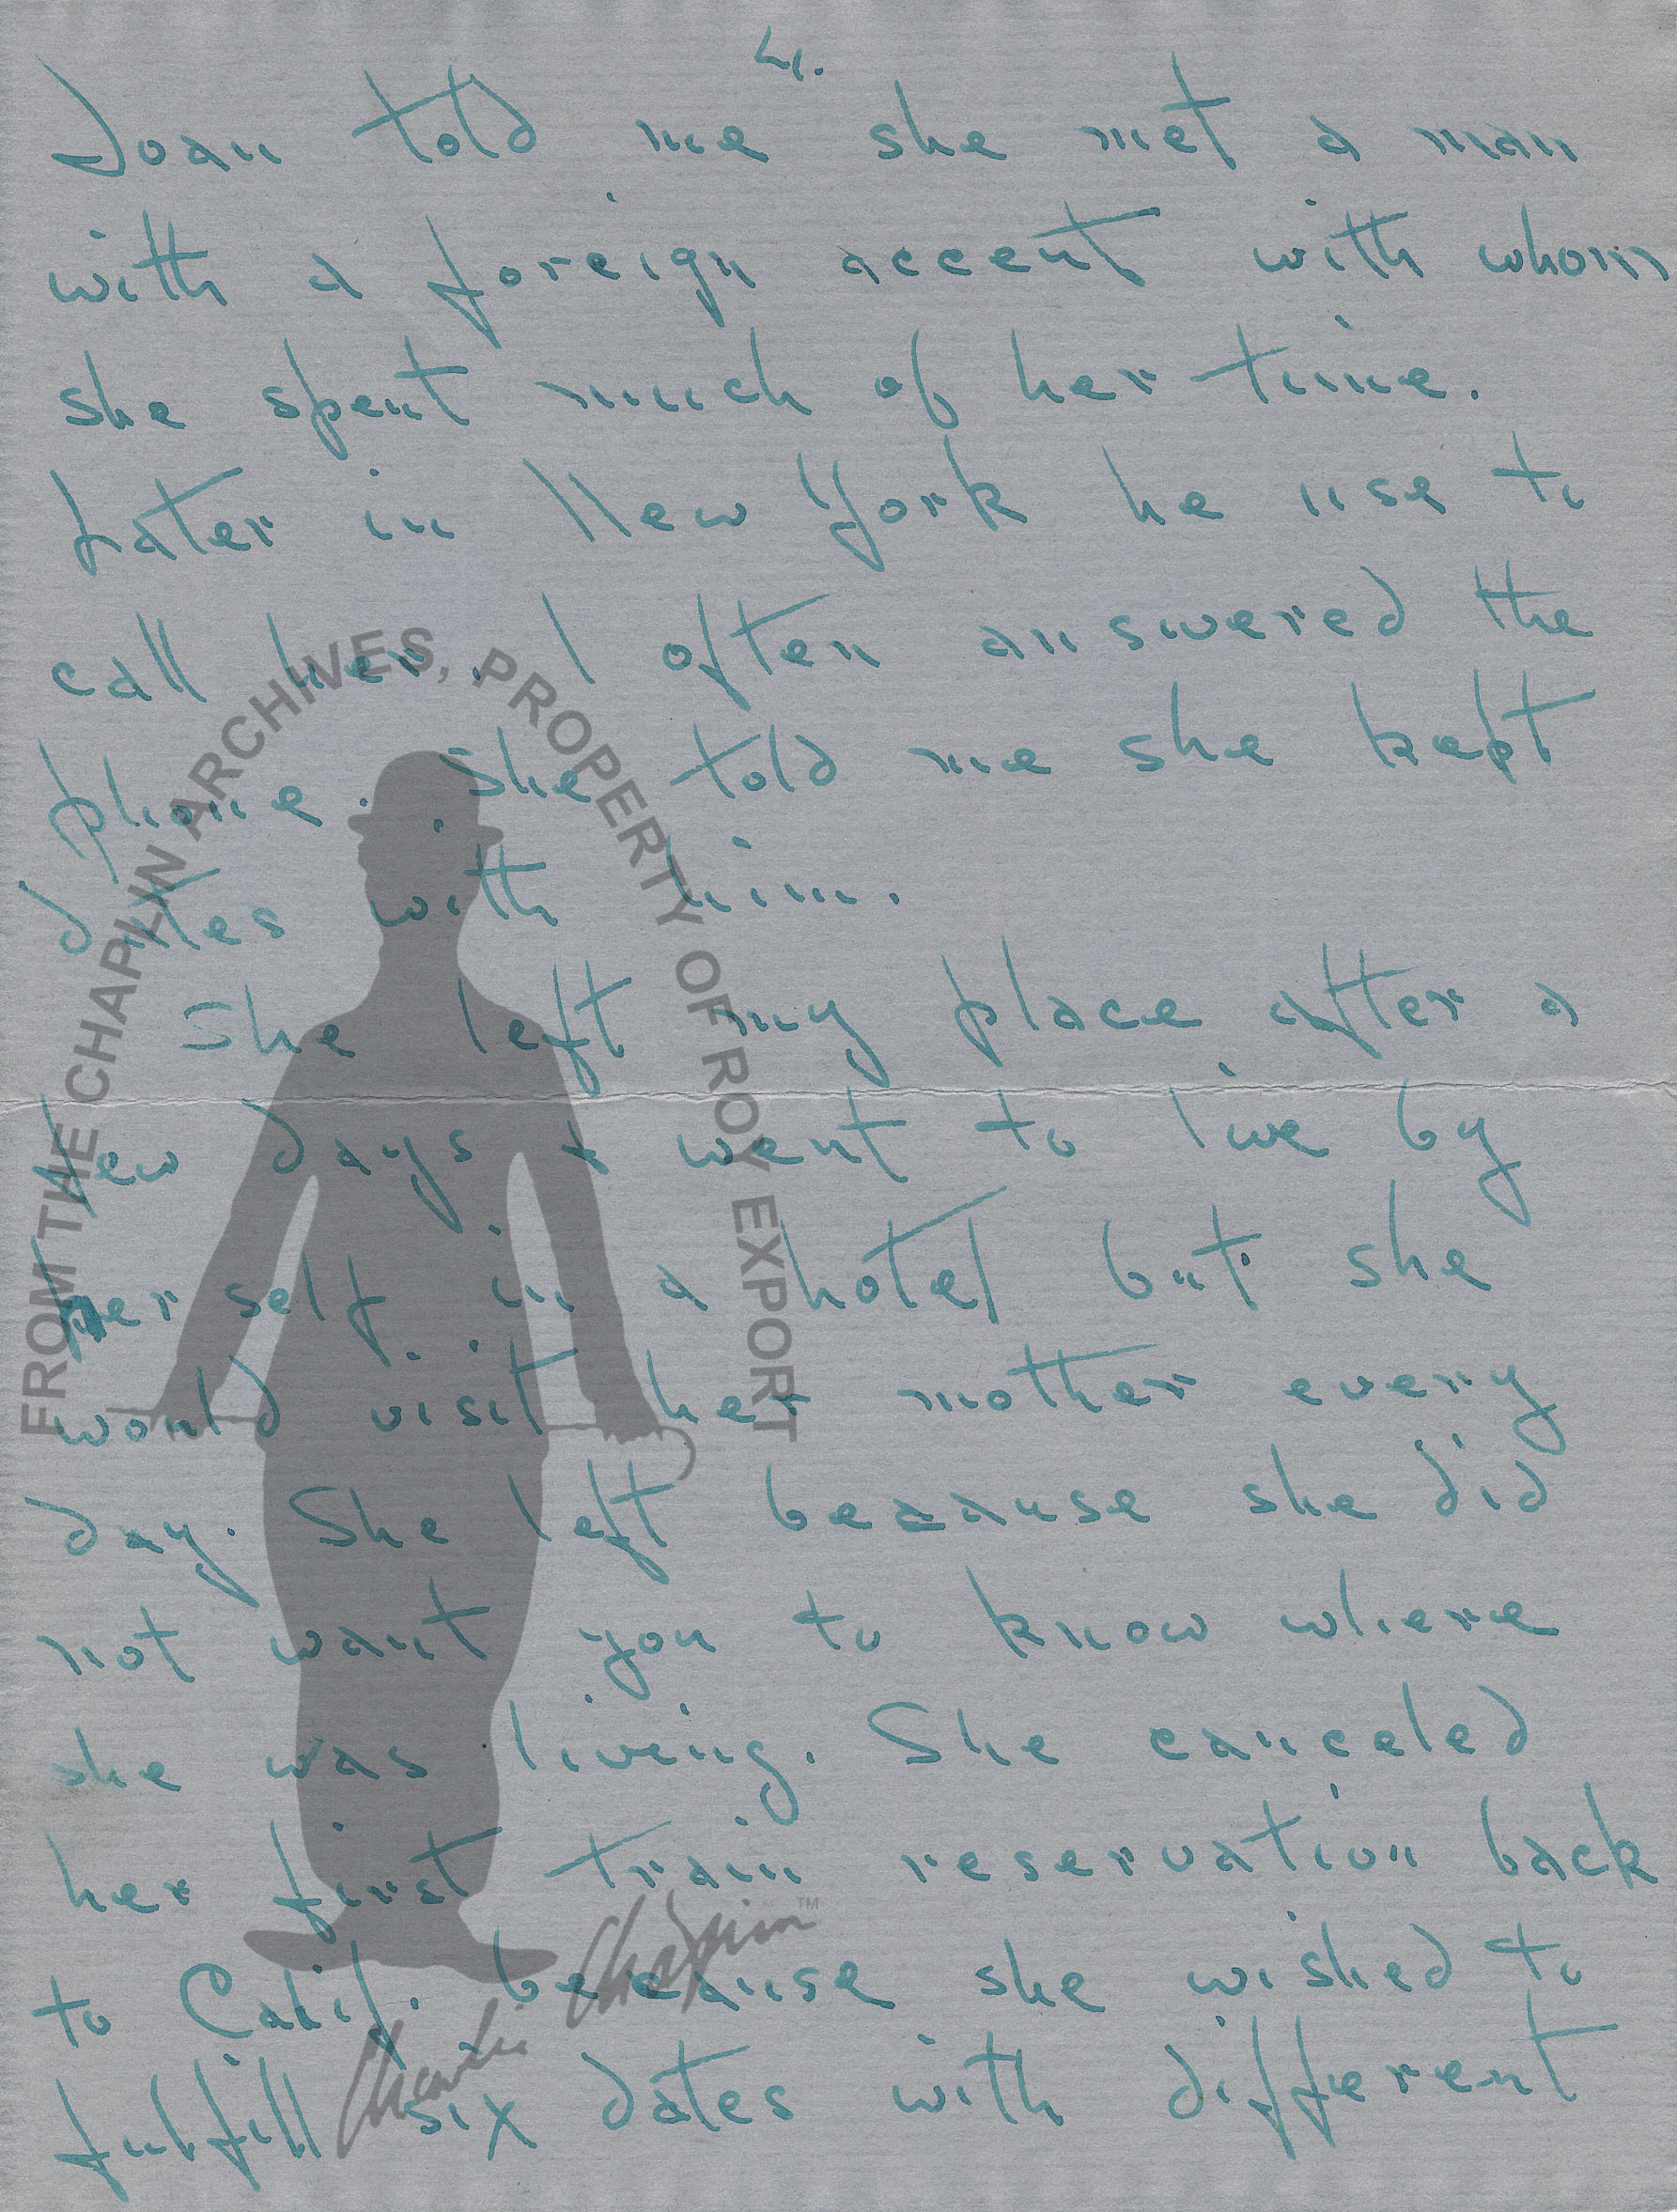 4.
Joan told me she met a man
with a foreign accent with whom
she spent much of her time.
Later in New York he use to
call her. I often answered the
phone. She told me she kept
dates with him.
She left my place after a
few days & went to live by
her self in a hotel but she
would visit her mother every
day. She left because she did
not want you to know where
she was living. She canceled
her first train reservation back
to Calif. because she wished to
fulfill six dates with different
FROM THE CHAPLIN ARCHIVES, PROPERTY OF ROY EXPORT
Charlie Chaplin™